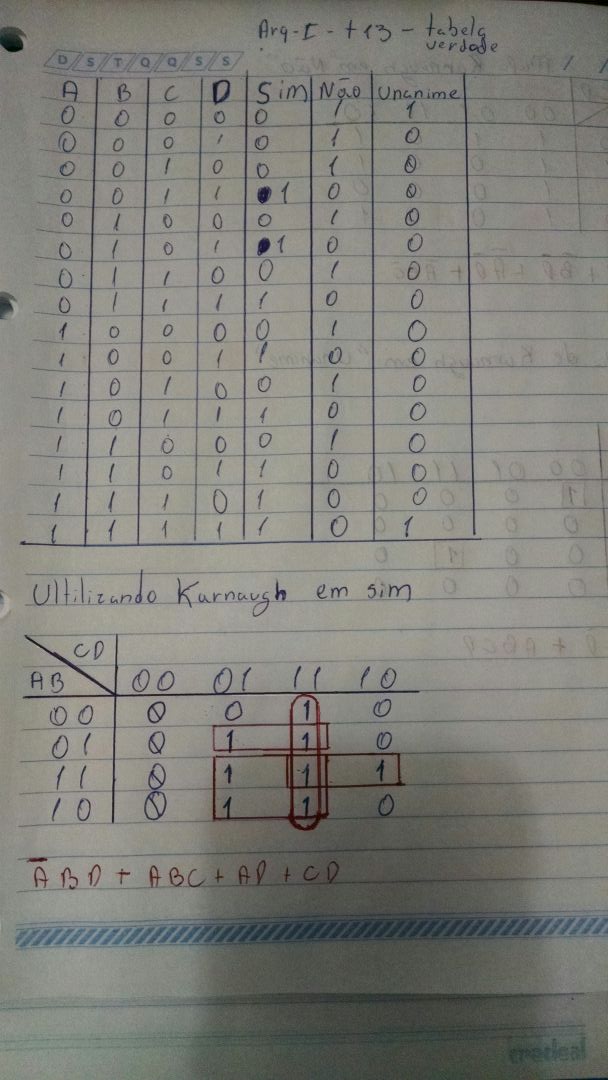 Arq-I - t13 - tabela
verdade
D S T Q Q S S
A B C D Sim Não Unanime
0 0 0 0 0 1 1
0 0 0 1 0 1 0
0 0 1 0 0 1 0
0 0 1 1 1 0 0
0 1 0 0 0 1 0
0 1 0 1 1 0 0
0 1 1 0 0 1 0
0 1 1 1 1 0 0
1 0 0 0 0 1 0
1 0 0 1 1 0 0
1 0 1 0 0 1 0
1 0 1 1 1 0 0
1 1 0 0 0 1 0
1 1 0 1 1 0 0
1 1 1 0 1 0 0
1 1 1 1 1 0 1
Ultilizando Karnaugh em sim
CD
AB 00 01 11 10
00 0 0 1 0
01 0 1 1 0
11 0 1 1 1
10 0 1 1 0
A̅BD + ABC + AD + CD